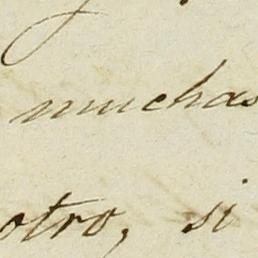 muchas
otro, si